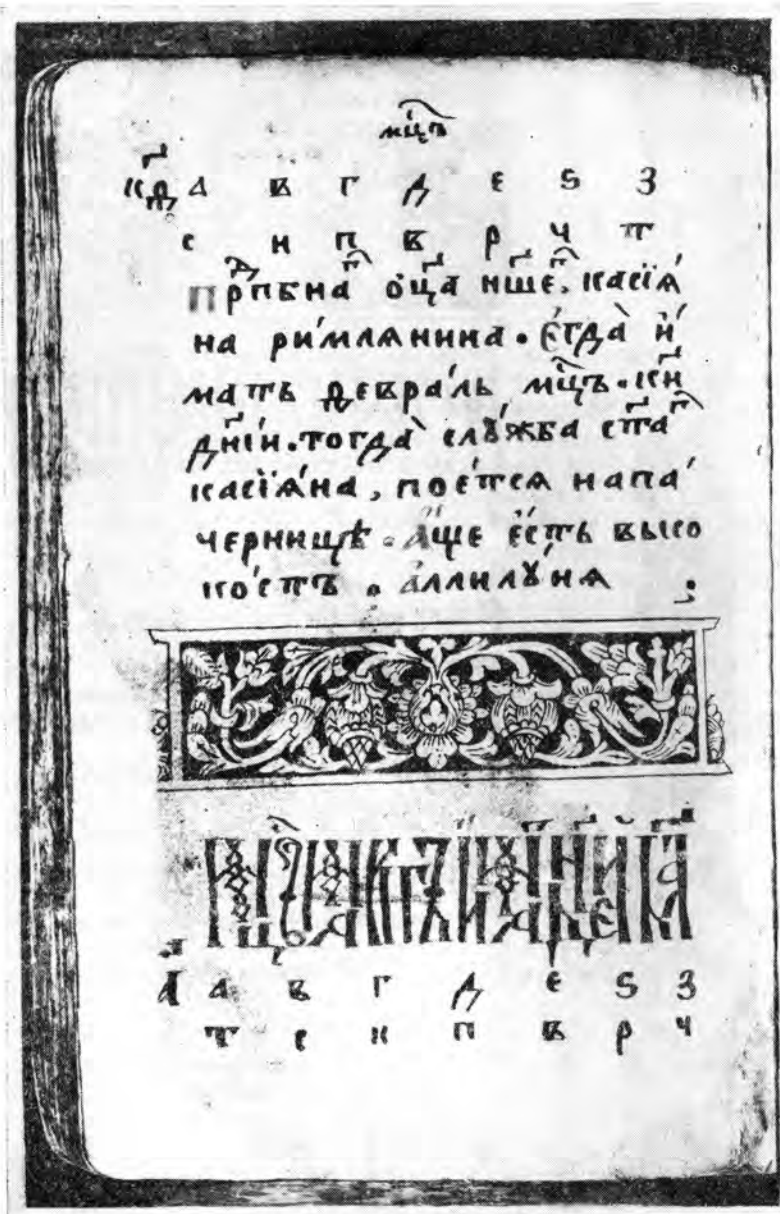 мц҃ъ
к҃ѳ а в г д є ѕ з
с н п в р ч т
прⷣпбнаⷢ ѻц҃а нш҃еⷢ, касїа́
на ри́млѧнина. є҆гда̀ и҆́
мать феврал́ь мц҃ъ. к҃и
дн҃їи. тогда̀ слꙋ́жба ст҃аⷢ
касїѧ́на, поє́тсѧ напа́
черницѣ. а҆́ще є҆́сть высо
ко́стъ. а҆ллилꙋ́иѧ
а҃ а в г д є ѕ з
т с н п в р ч